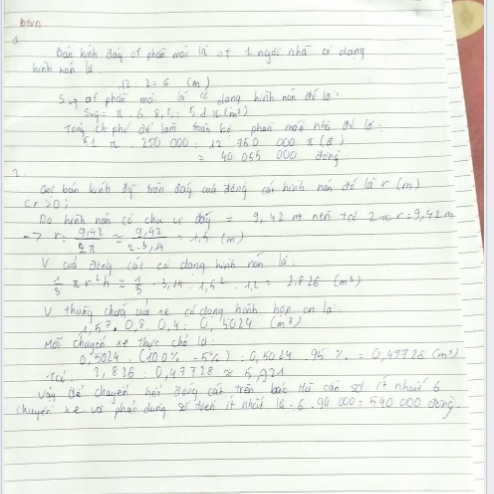 BTVN
1.
Bán kính đáy of phần mái lá of 1 ngôi nhà có dạng
hình nón là:
12 : 2 = 6 (m)
Sxq of phần mái lá có dạng hình nón đó là:
Sxq = π . 6 . 8,5 = 51 π (m²)
Tổng chi phí để làm toàn bộ phần mái nhà đó là:
51 π . 250 000 = 12 750 000 π (đ)
= 40 055 000 đồng
2.
Gọi bán kính đg tròn đáy của đống cát hình nón đó là r (m)
(r > 0)
Do hình nón có chu vi đáy = 9,42 m nên ta có 2πr = 9,42 m
-> r = 9,42 / 2π ≈ 9,42 / 2.3,14 = 1,5 (m)
V của đống cát có dạng hình nón là:
1/3 π r² h ≈ 1/3 . 3,14 . 1,5² . 1,2 = 2,826 (m³)
V thùng chứa của xe có dạng hình hộp cn là:
1,57 . 0,8 . 0,4 = 0,5024 (m³)
Mỗi chuyến xe thực chở là:
0,5024 . (100% - 5%) = 0,5024 . 95 % = 0,47728 (m³)
Ta có: 2,826 : 0,47728 ≈ 5,921
Vậy để chuyển hết đống cát trên bác Hà cần sd ít nhất 6
chuyến xe và phải dùng số tiền ít nhất là 6 . 90 000 = 540 000 đồng.